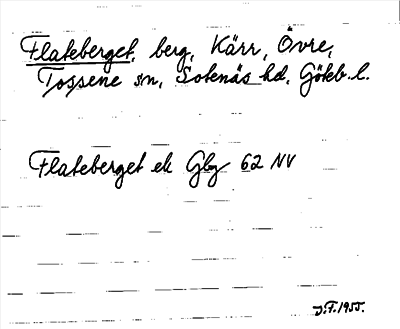 Flateberget, berg, Kärr, Övre,
Tossene sn, Sotenäs hd, Göteb. l.
Flateberget ek Gbg 62 NV
J.F. 1955.